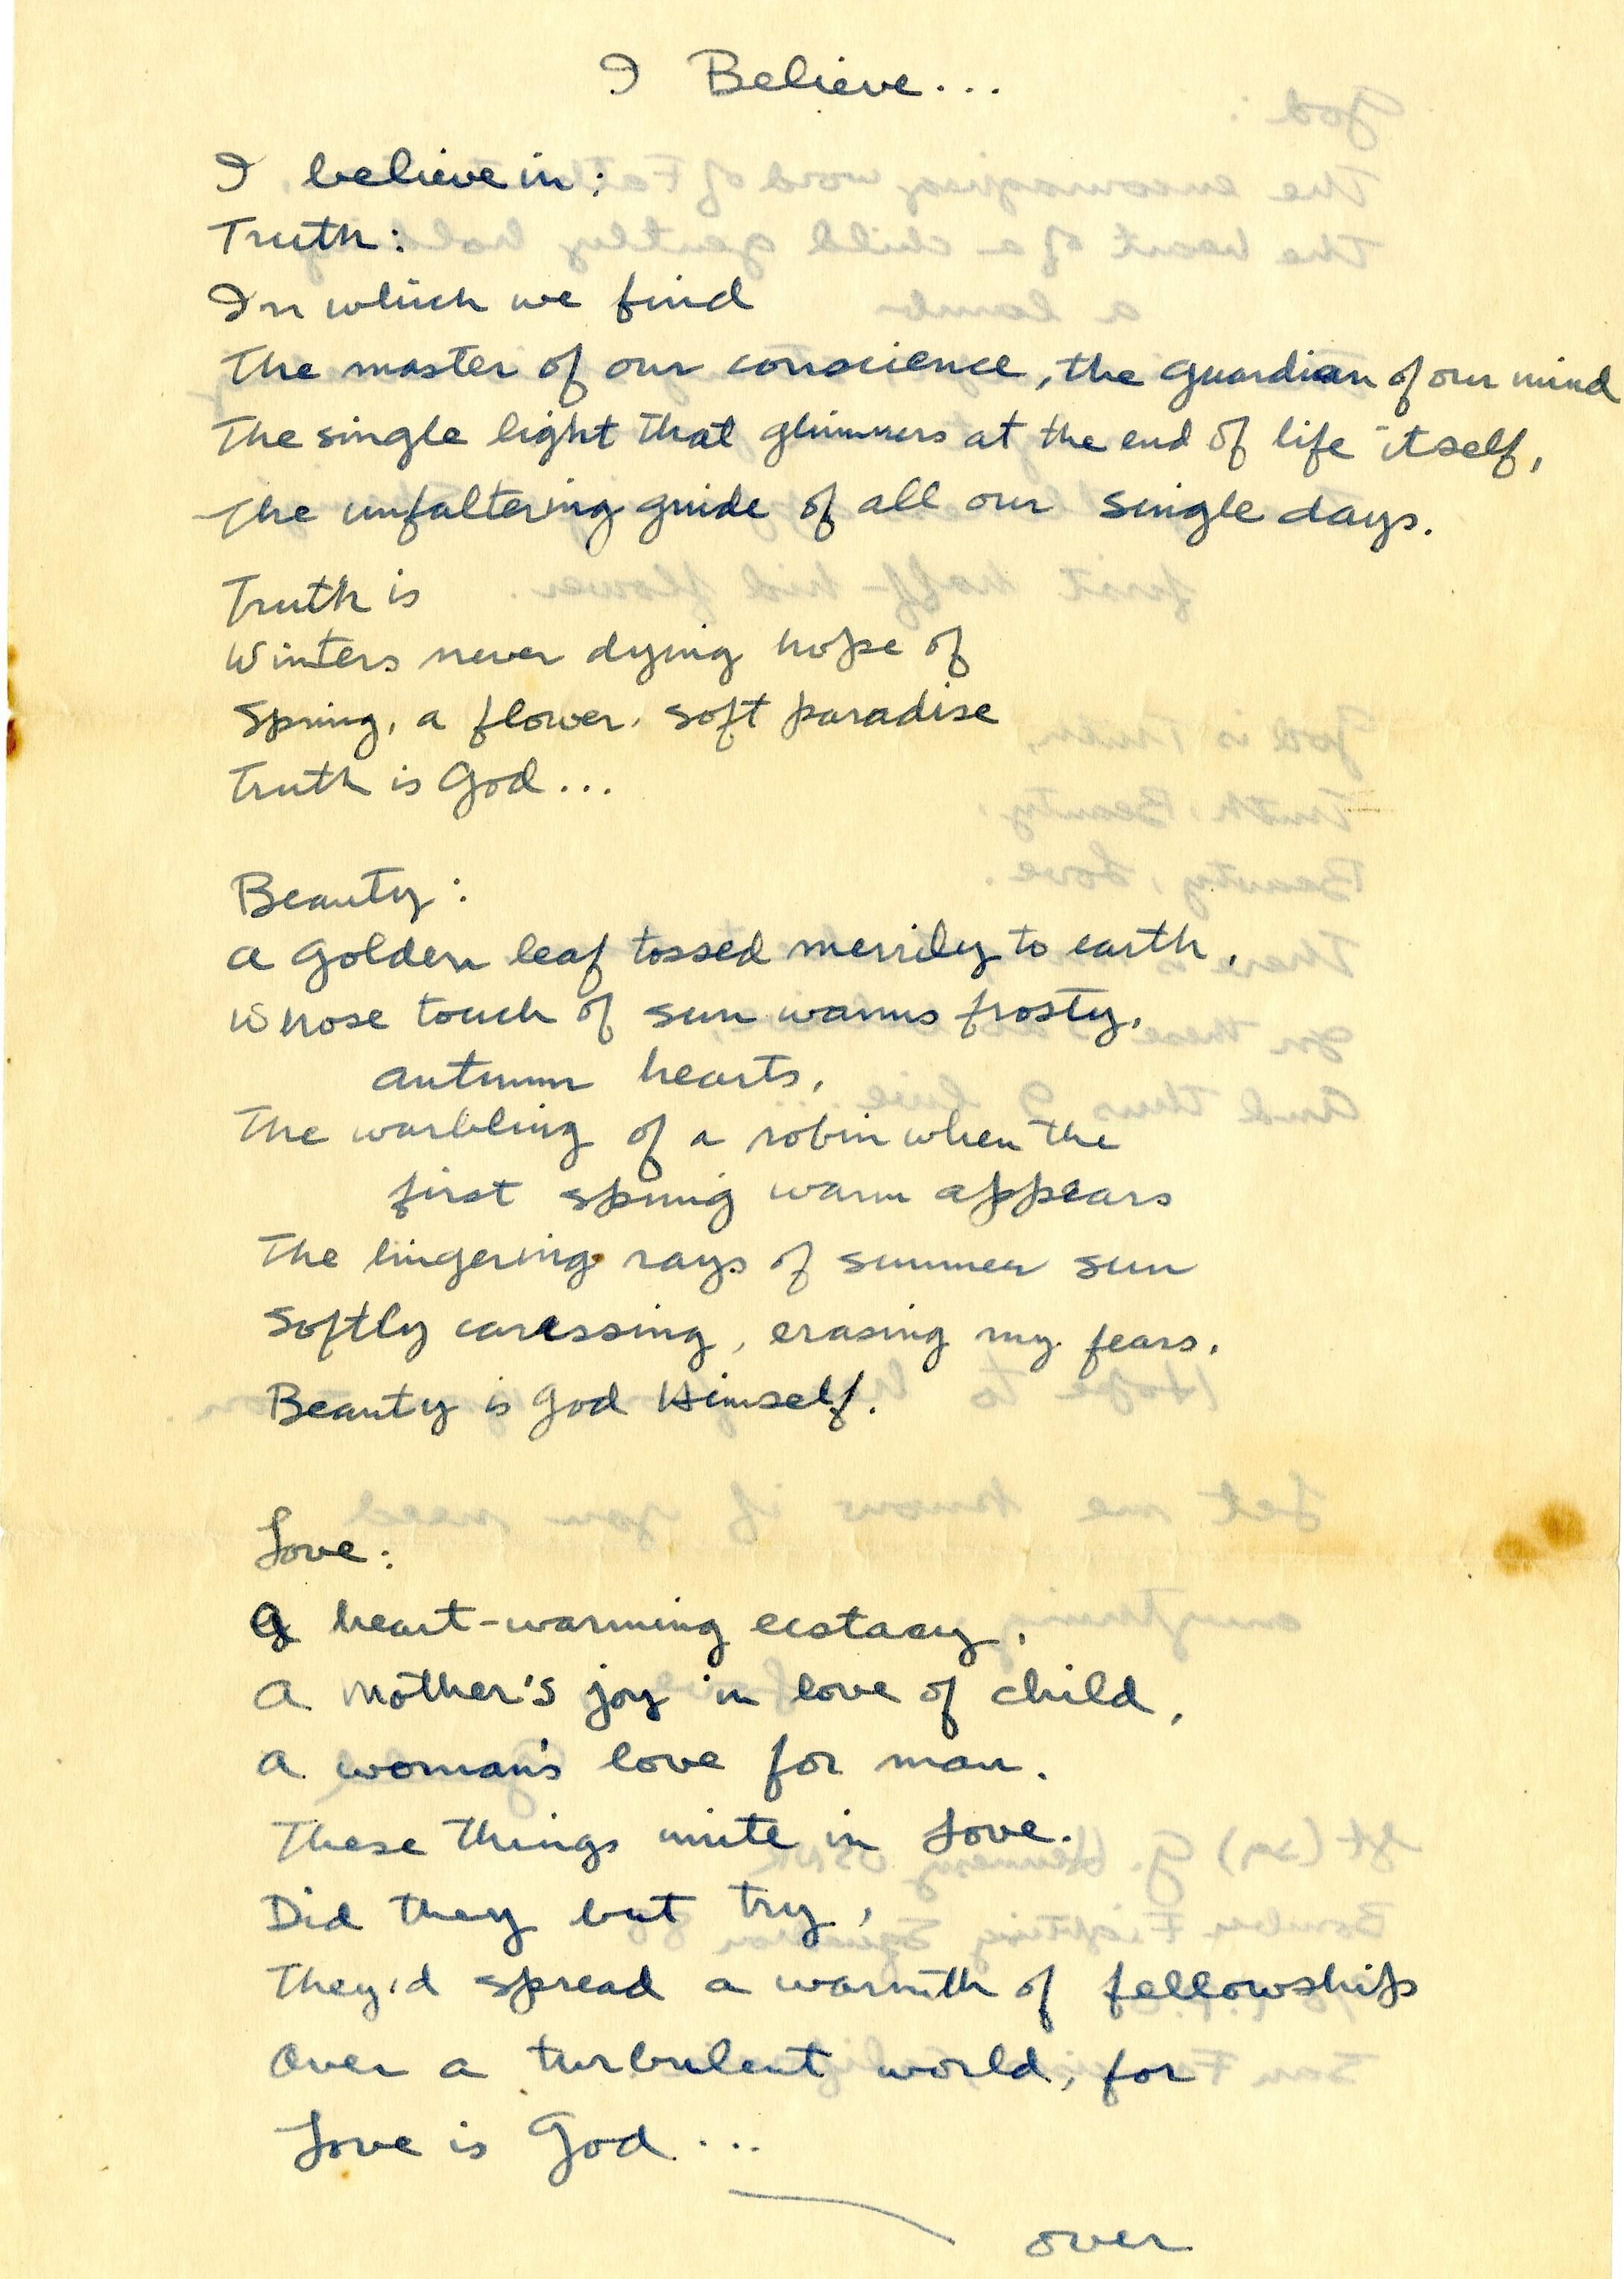 I Believe...
I believe in:
Truth:
In which we find
The master of our conscience, the guardian of our mind
The single light that glimmers at the end of life itself,
The unfaltering guide of all our single days.
Truth is
Winters never dying hope of
Spring, a flower, soft paradise
Truth is God...
Beauty:
A golden leaf tossed merrily to earth,
Whose touch of sun warms frosty,
autumn hearts,
The warbling of a robin when the
first spring warm appears
The lingering rays of summer sun
Softly caressing, erasing my fears.
Beauty is God Himself.
Love:
A heart-warming ecstasy,
A Mother's joy in love of child,
A woman's love for man.
These things unite in Love.
Did they but try,
They'd spread a warmth of fellowship
Over a turbulent world, for
Love is God...
over